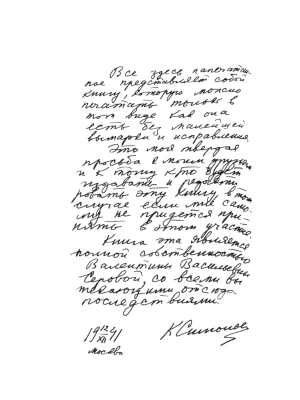 Все здесь напечатан-
ное представляет собой
книгу, которую можно
печатать только в
том виде как она
есть без малейшей
вымарки и исправления
Это моя твердая
просьба к моим друзьям
и к тому кто будет
издавать и редакти-
ровать эту книгу, в том
случае если мне само-
му не придется при-
нять в этом участие.
Книга эта является
полной собственностью
Валентины Васильевны
Серовой, со всеми вы-
текающими отсюда
последствиями.
19 12/XII 41 КСимонов
Москва